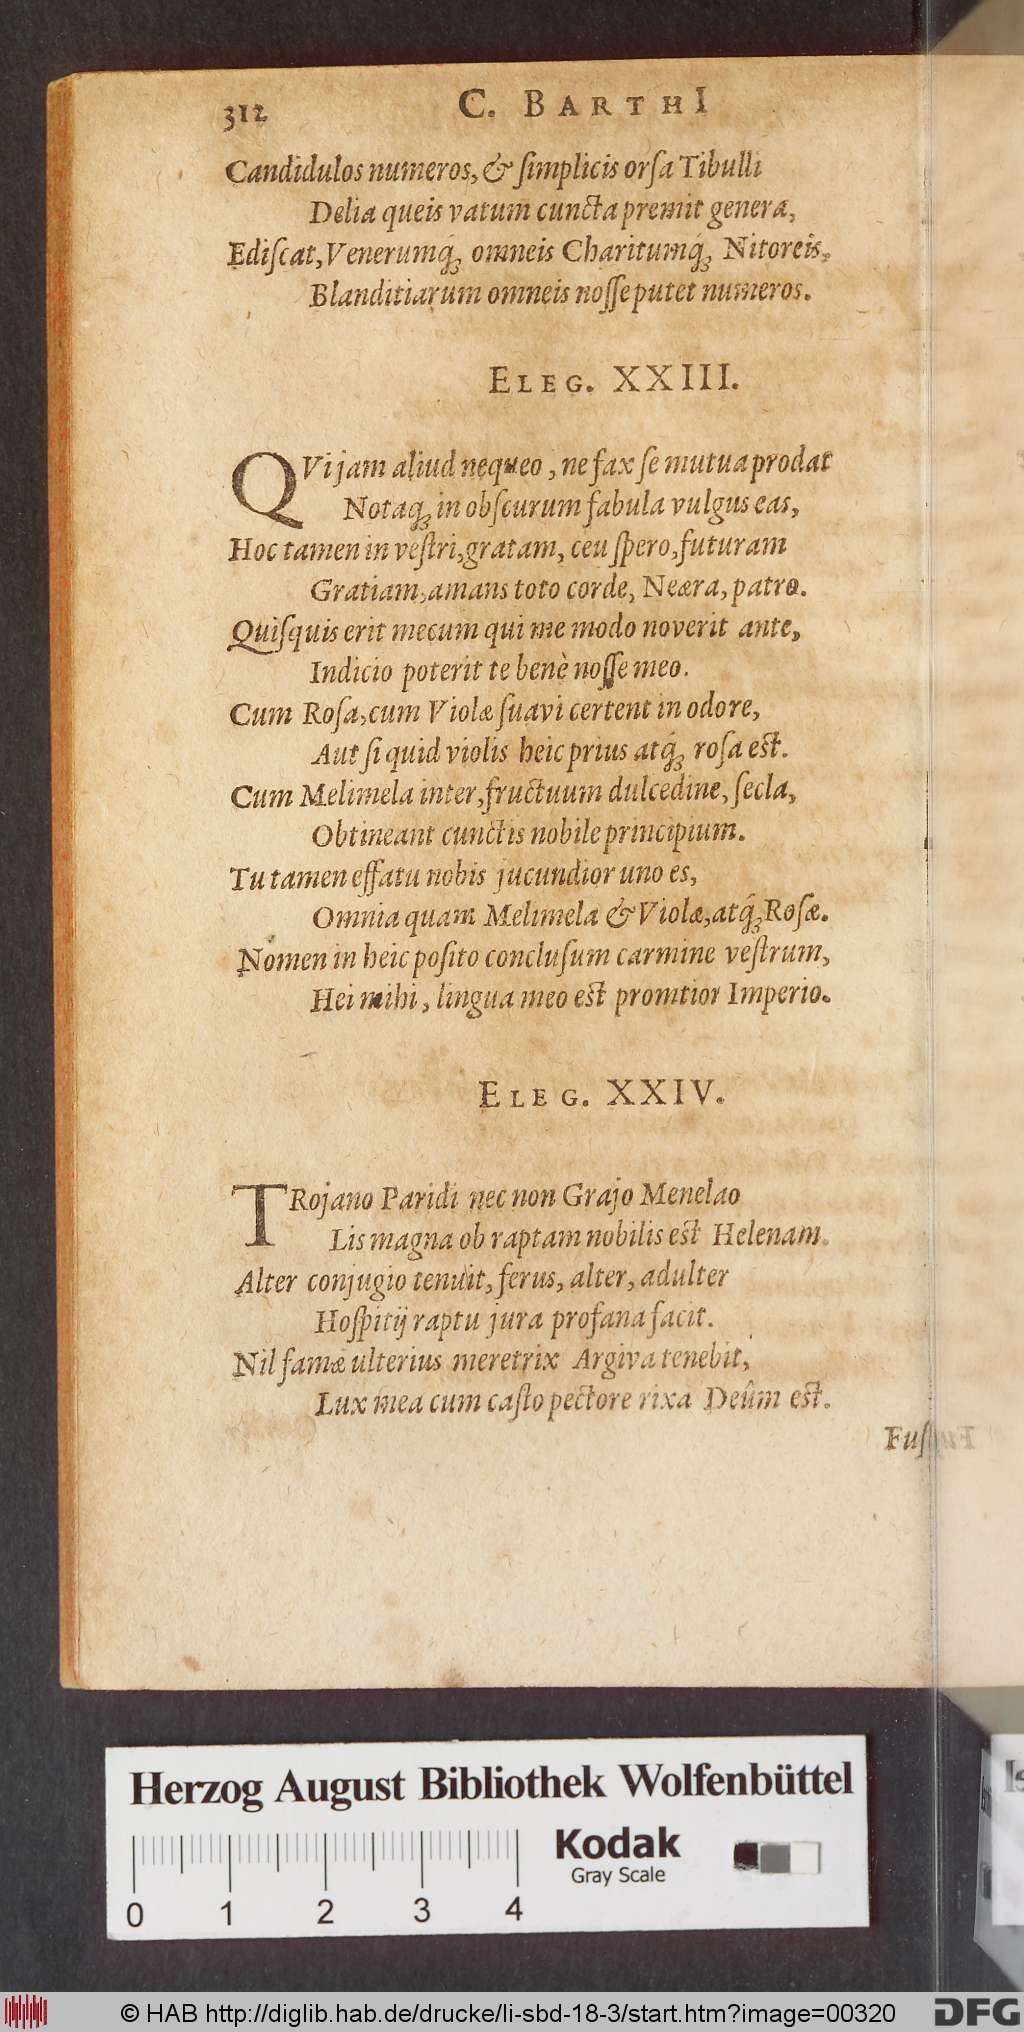 312
C. BARTHI
Candidulos numeros, & ſimplicis orſa Tibulli
Delia queis vatum cuncta premit genera,
Ediſcat, Venerumq́; omneis Charitumq́; Nitoreis,
Blanditiarum omneis noſſe putet numeros.
ELEG. XXIII.
QVi jam aliud nequeo, ne fax ſe mutua prodat
Notaq; in obſcurum fabula vulgus eas,
Hoc tamen in veſtri, gratam, ceu ſpero, futuram
Gratiam, amans toto corde, Neæra, patro.
Quiſquis erit mecum qui me modo noverit ante,
Indicio poterit te benè noſſe meo.
Cum Roſa, cum Violæ ſuavi certent in odore,
Aut ſi quid violis heic prius atq́; roſa eſt.
Cum Melimela inter, fructuum dulcedine, ſecla,
Obtineant cunctis nobile principium.
Tu tamen effatu nobis jucundior uno es,
Omnia quam Melimela & Violæ, atq́; Roſæ.
Nomen in heic poſito concluſum carmine veſtrum,
Hei mihi, lingua meo eſt promtior Imperio.
ELEG. XXIV.
TRojano Paridi nec non Grajo Menelao
Lis magna ob raptam nobilis eſt Helenam.
Alter conjugio tenuit, ferus, alter, adulter
Hoſpitij raptu jura profana facit.
Nil famæ ulterius meretrix Argiva tenebit,
Lux mea cum caſto pectore rixa Deûm eſt.
Herzog August Bibliothek Wolfenbüttel
Kodak
Gray Scale
0 1 2 3 4
© HAB http://diglib.hab.de/drucke/li-sbd-18-3/start.htm?image=00320
DFG